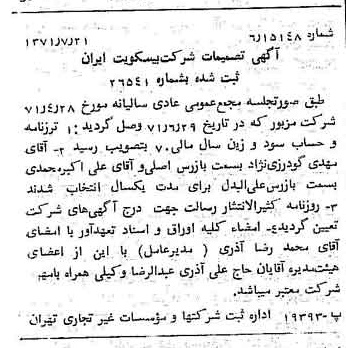 شماره ۶/۱۵۱۴۸ ۱۳۷۱/۷/۲۱
آگهی تصمیمات شرکت بیسکویت ایران
ثبت شده بشماره ۲۶۵۴۱
طبق صورتجلسه مجمع عمومی عادی سالیانه مورخ ۷۱/۴/۲۸
شرکت مزبور که در تاریخ ۷۱/۶/۲۹ وصل گردید: ۱ ترزنامه
و حساب سود و زین سال مالی ۷۰ بتصویب رسید ۲- آقای
مهدی گودرزی‌نژاد بسمت بازرس اصلی و آقای علی اکبرمحمدی
بسمت بازرس علی‌البدل برای مدت یکسال انتخاب شدند
۳- روزنامه کثیرالانتشار رسالت جهت درج آگهی‌های شرکت
تعیین گردید ۴- امضاء کلیه اوراق و اسناد تعهدآور با امضای
آقای محمد رضا آذری (مدیرعامل) با این از اعضای
هیئت‌مدیره آقایان حاج علی آذری عبدالرضا وکیلی همراه بامهر
شرکت معتبر میباشد.
پ-۱۹۳۹۳ اداره ثبت شرکتها و مؤسسات غیر تجاری تهران